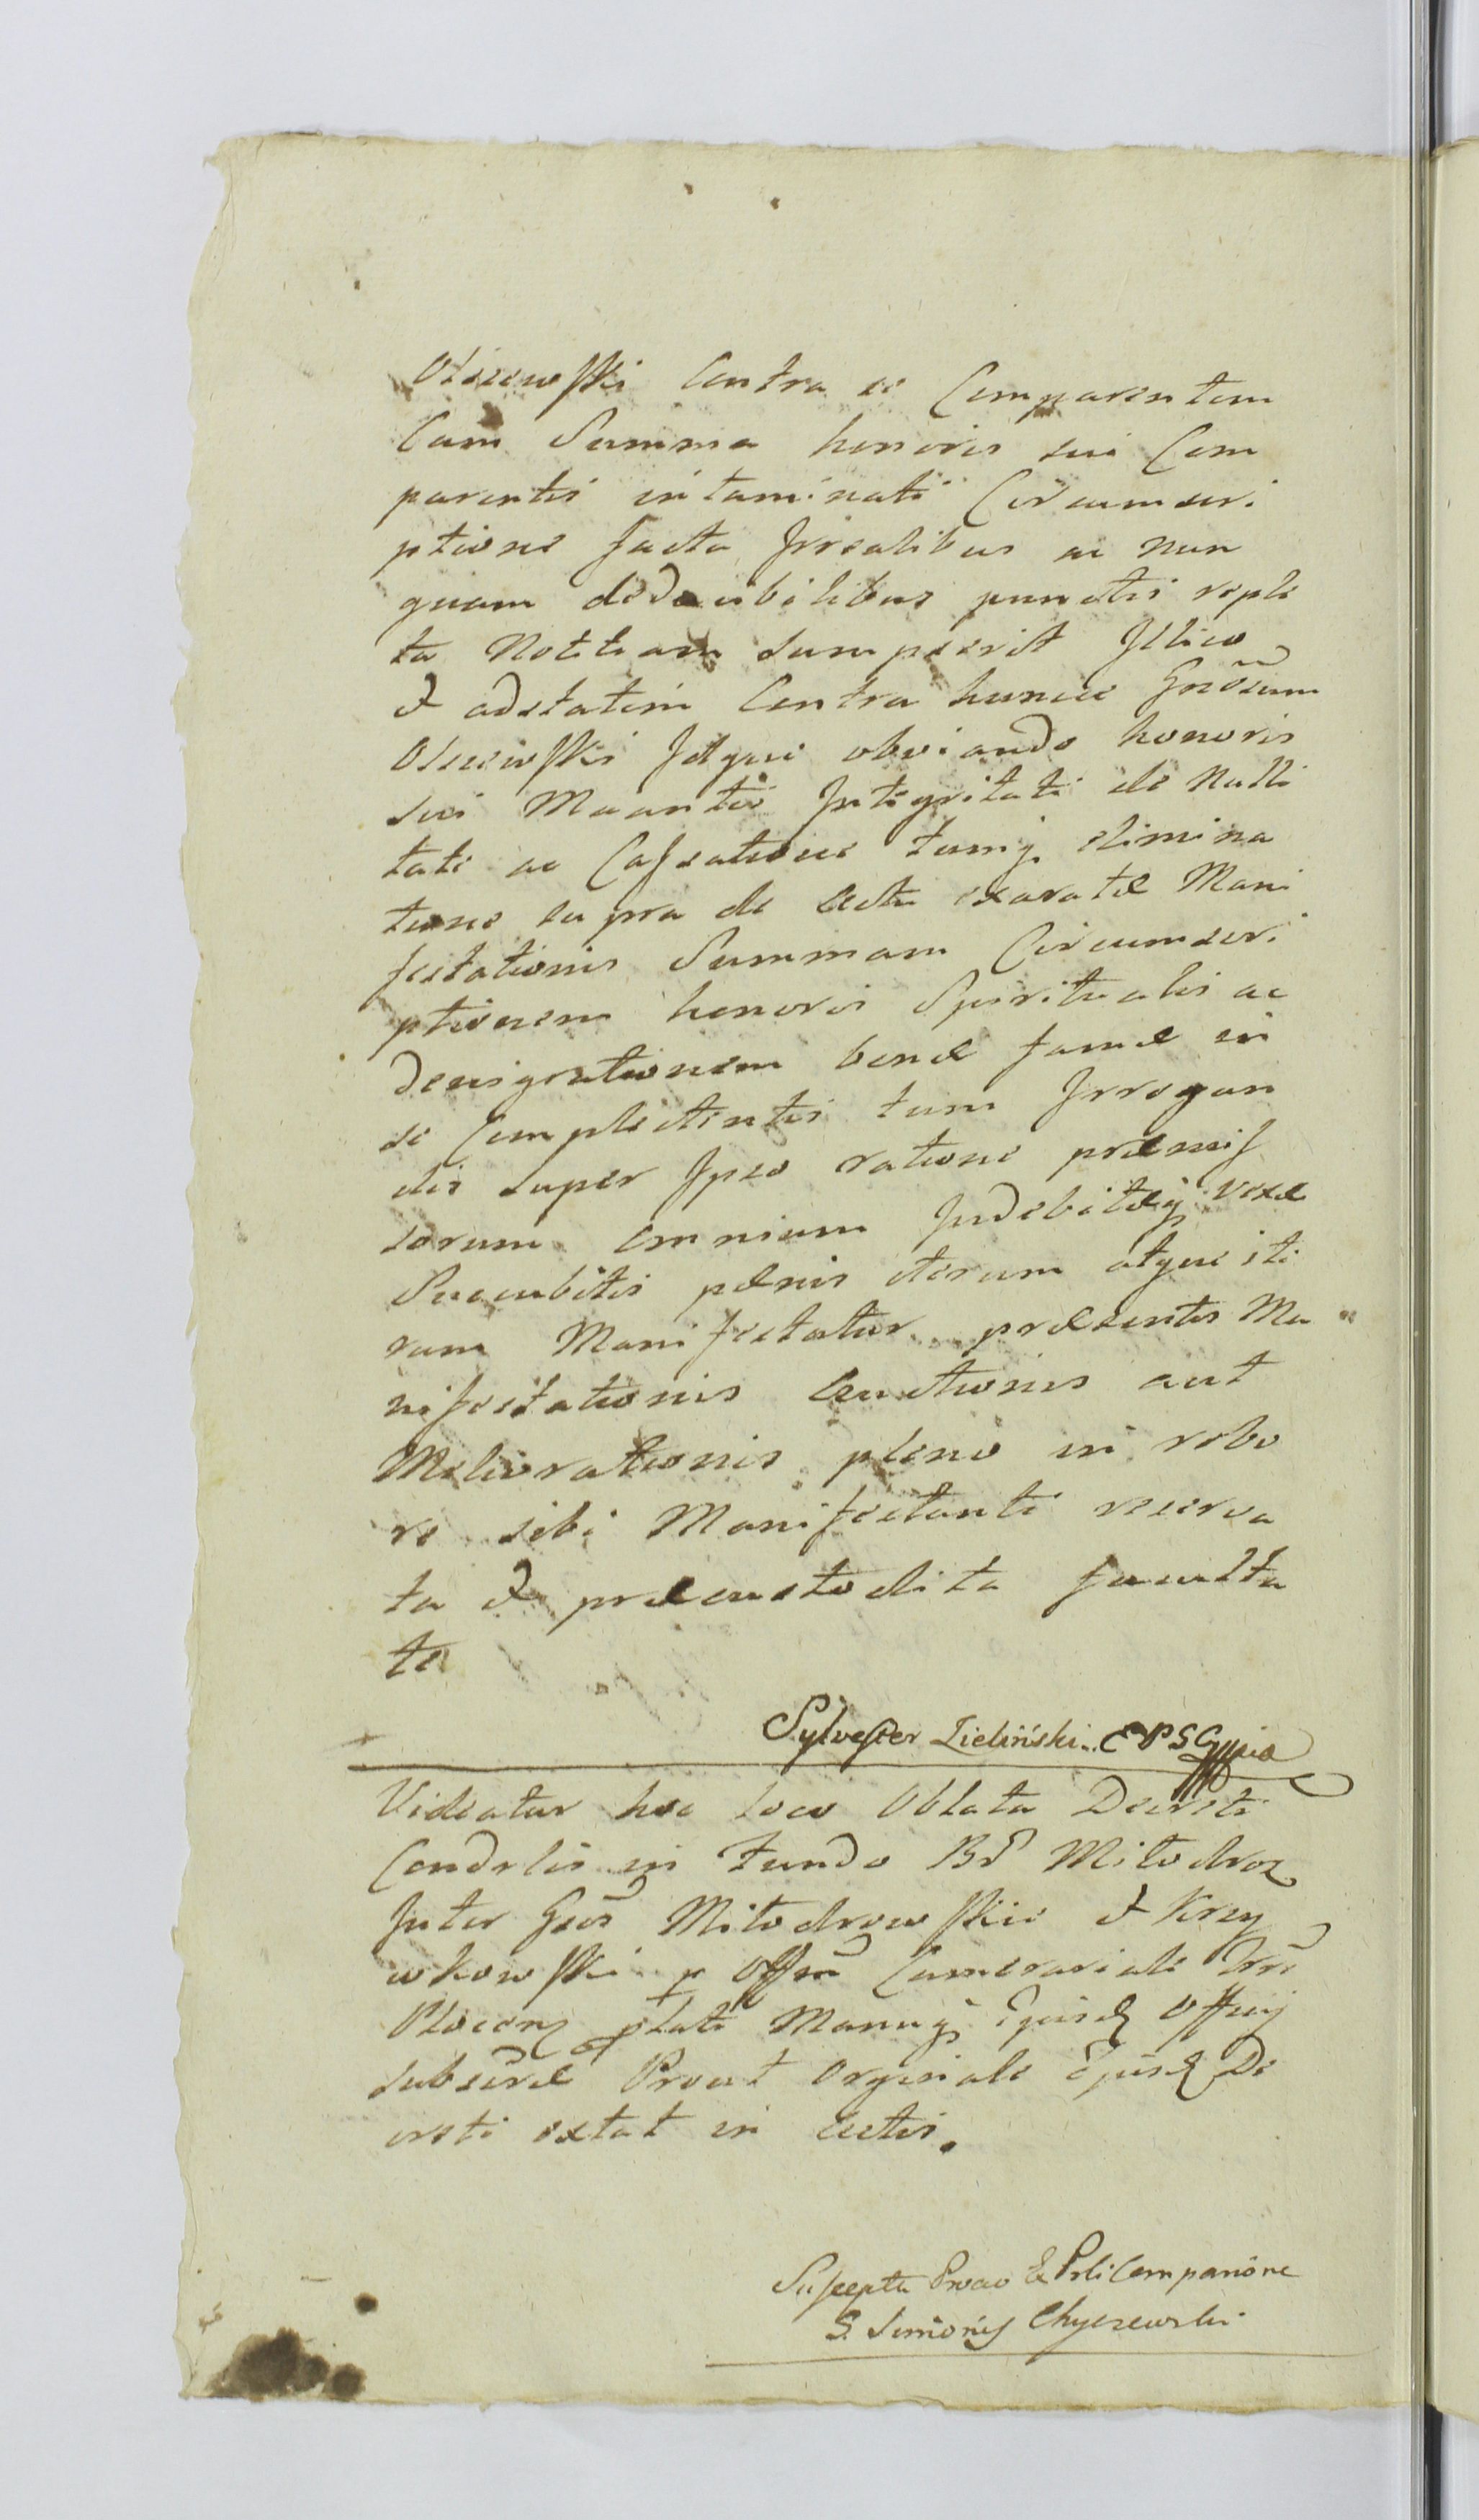 Olszewski Contra se Comparentem
Cum Summa honoris sui Com
parentis intaminati Circumscri
ptione facta Irrealibus ac nun
quam deducibilibus punctis reple
ta Notitiam sumpserit Illico
et adstatim Contra huncce Gnõsum
Olszewski Idque obviando honoris
sui Maantis Integritati de Nulli
tate ac Cassatione tumq. elimina
tione supra de Actu exaratæ Mani
festationis Summam Circumscri
ptionem honoris Spiritualis ac
denigrationem bonæ famæ in
se Complectentis tum Irrogan
dis super Ipso ratione præmis
sorum omnium Indebitæq. vexæ
Succubitis pænis iterum atque ite
rum Manifestatur præsentis Ma
nifestationis Auctionis aut
Meliorationis pleno in robo
re sibi Manifestanti reserva
ta et præcustodita faculta
te
Sylvester Zieliński
Videatur hoc loco Oblata Decreti
Condrlis in Fundo Br Miłodroz
Inter Gñs Miłodrowskie et Krzy
wkowski p Offm Camerariale Trr
Plocen latti Manuq. Ejusd Officij
subscræ Prout Orginale Ejusd De
creti extat in Actis.
Suscepta Procao & Prli Companõne
S. Simonis Chyczewski